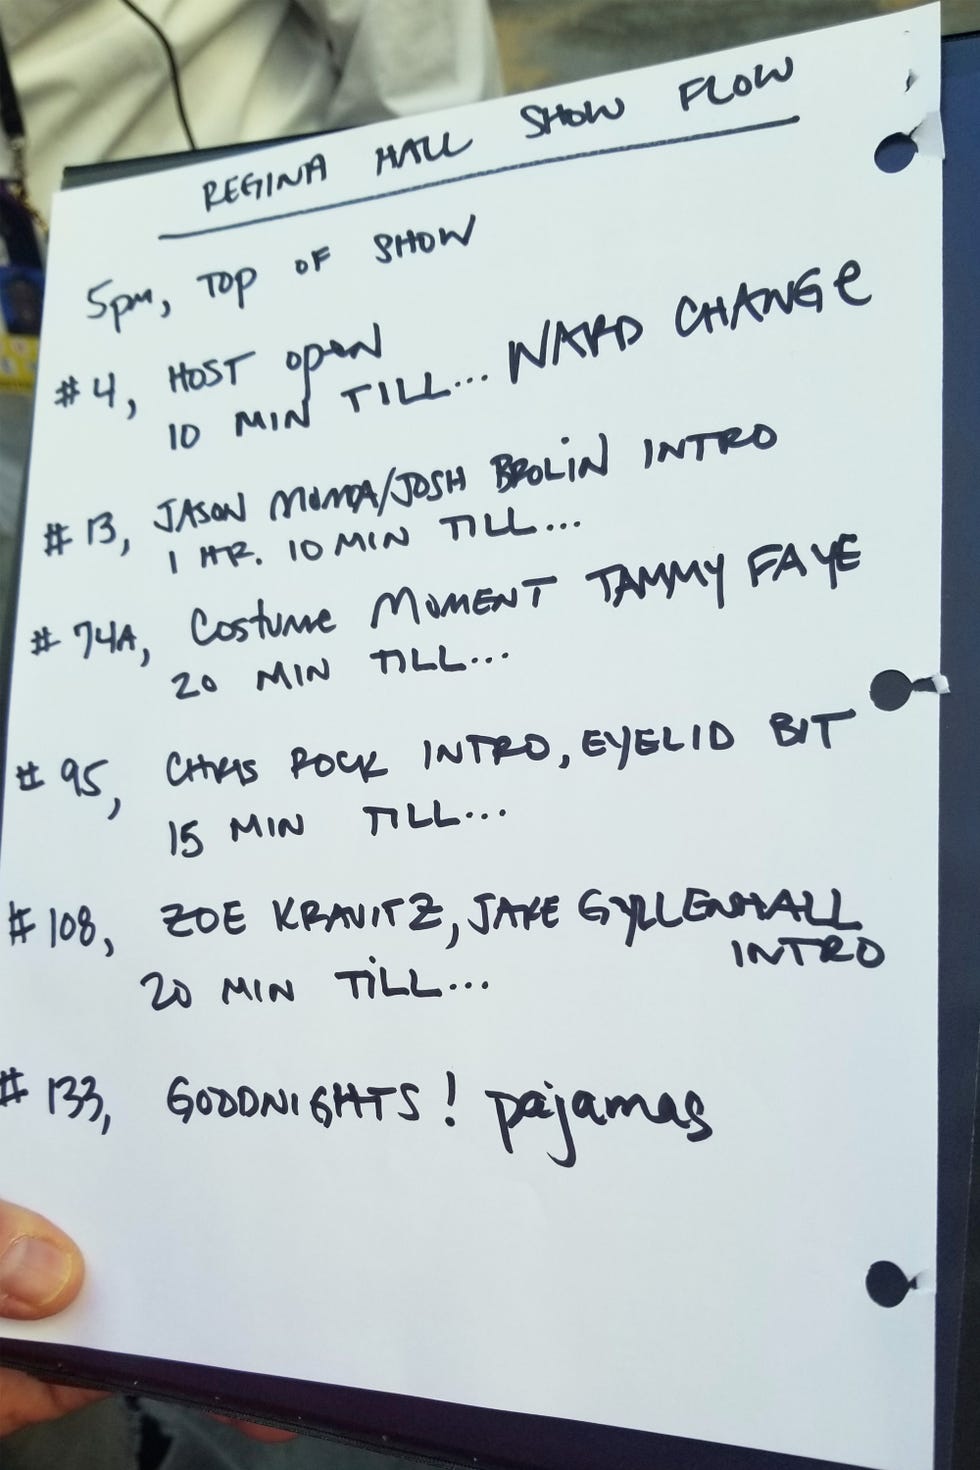 REGINA HALL SHOW FLOW
5pm, TOP OF SHOW
#4, HOST OPEN
10 MIN TILL... WARD CHANGE
#13, JASON MOMOA/JOSH BROLIN INTRO
1 HR. 10 MIN TILL...
#74A, Costume MOMENT TAMMY FAYE
20 MIN TILL...
#95, CHRIS ROCK INTRO, EYELID BIT
15 MIN TILL...
#108, ZOE KRAVITZ, JAKE GYLLENHALL
INTRO
20 MIN TILL...
#133, GOODNIGHTS! pajamas